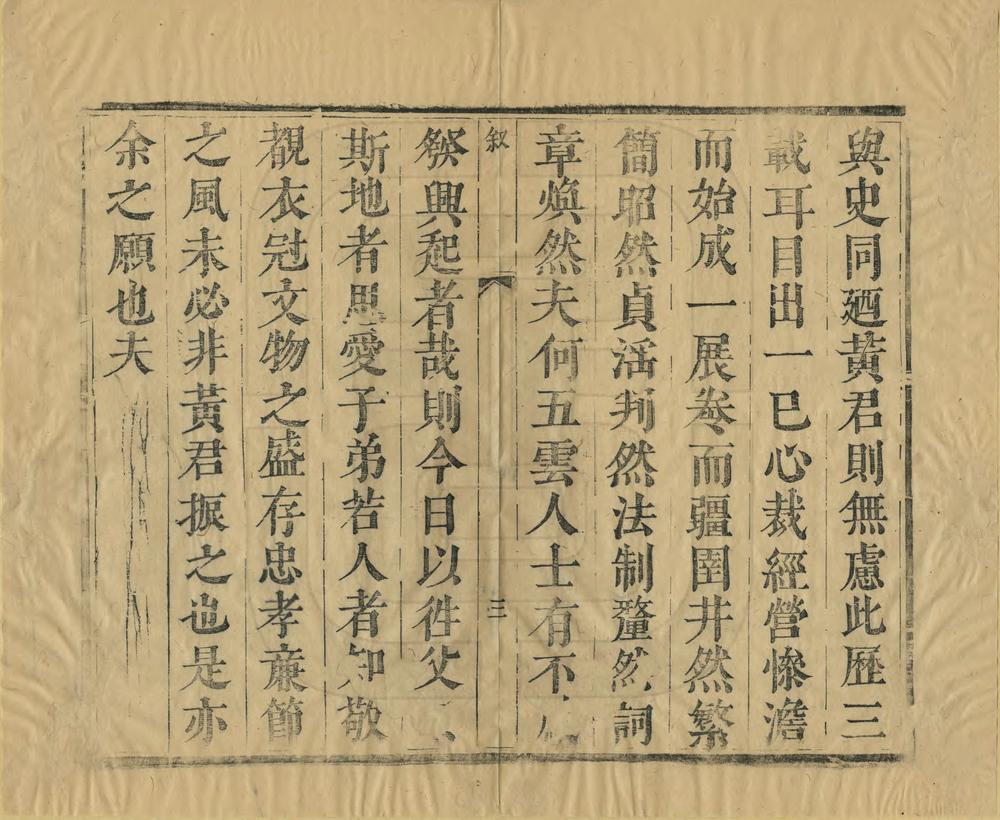 與史同廼黃君則無慮此歷三
載耳目出一已心裁經營慘澹
而始成一展卷而疆圉井然繁
簡昭然貞淫判然法制釐然詞
章煥然夫何五雲人士有不
叙
三
發興起者哉則今日以徃父
斯地者思愛子弟若人者知敬
覩衣冠文物之盛存忠孝亷節
之風未必非黃君振之也是亦
余之願也夫